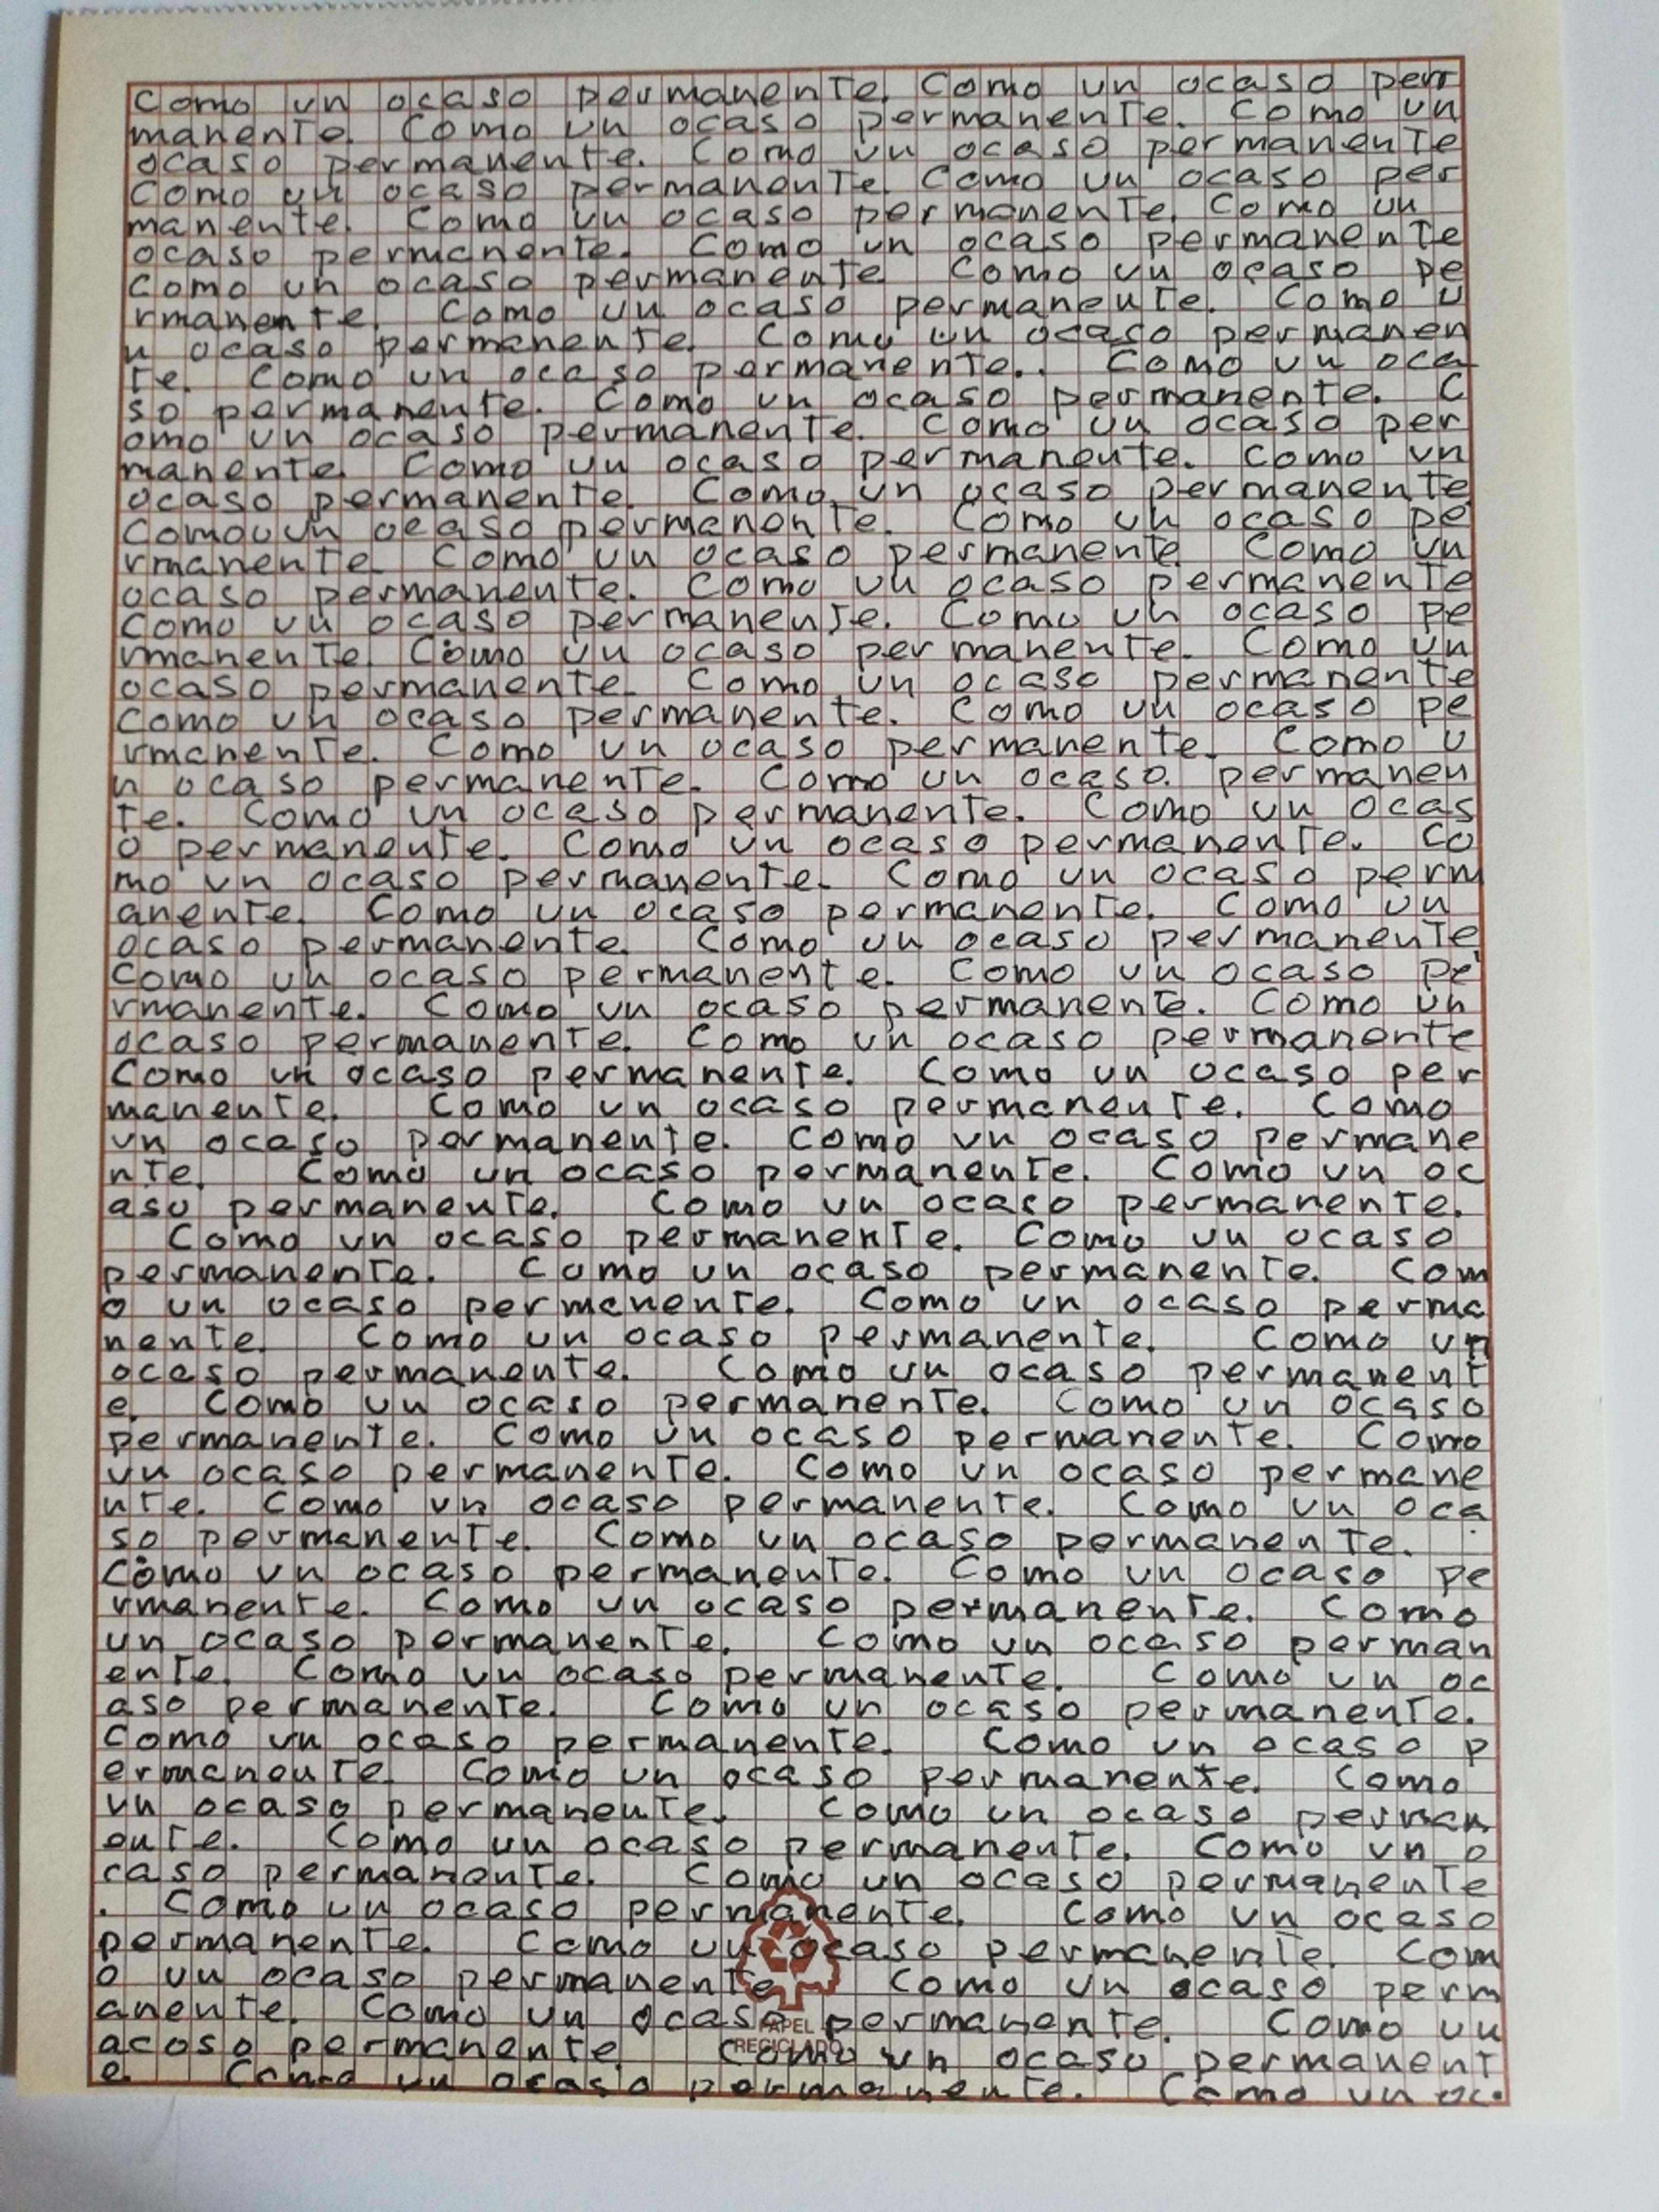 Como un ocaso permanente. Como un ocaso perr
manente. Como un ocaso permanente. Como un
ocaso permanente. Como un ocaso permanente
Como un ocaso permanente. Como un ocaso per
manente. Como un ocaso permanente. Como un
ocaso permanente. Como un ocaso permanente
Como un ocaso permanente Como un ocaso pe
rmanente. Como un ocaso permanente. Como u
n ocaso permanente. Como un ocaso permanen
te. Como un ocaso permanente.. Como un oca
so permanente. Como un ocaso permanente. C
omo un ocaso permanente. Como un ocaso per
manente. Como un ocaso permanente. Como un
ocaso permanente. Como un ocaso permanente
Comouun ocaso permanente. Como un ocaso pe
rmanente. Como un ocaso permanente Como un
ocaso permanente. Como un ocaso permanente
Como un ocaso permanente. Como un ocaso pe
rmanente. Como un ocaso permanente. Como un
ocaso permanente. Como un ocaso permanente
Como un ocaso permanente. Como un ocaso pe
rmanente. Como un ocaso permanente. Como u
n ocaso permanente. Como un ocaso. permanen
te. Como un ocaso permanente. Como un ocas
o permanente. Como un ocaso permanente. Co
mo un ocaso permanente. Como un ocaso perm
anente. Como un ocaso permanente. Como un
ocaso permanente. Como un ocaso permanente
Como un ocaso permanente. Como un ocaso pe
rmanente. Como un ocaso permanente. Como un
ocaso permanente. Como un ocaso permanente
Como un ocaso permanente. Como un ocaso per
manente. Como un ocaso permanente. Como
un ocaso permanente. Como un ocaso permane
nte. Como un ocaso permanente. Como un oc
aso permanente. Como un ocaso permanente.
Como un ocaso permanente. Como un ocaso
permanente. Como un ocaso permanente. Com
o un ocaso permanente. Como un ocaso perma
nente. Como un ocaso permanente. Como un
ocaso permanente. Como un ocaso permanent
e. Como un ocaso permanente. Como un ocaso
permanente. Como un ocaso permanente. Como
un ocaso permanente. Como un ocaso permane
nte. Como un ocaso permanente. Como un oca
so permanente. Como un ocaso permanente.
Como un ocaso permanente. Como un ocaso pe
rmanente. Como un ocaso permanente. Como
un ocaso permanente. Como un ocaso perman
ente. Como un ocaso permanente. Como un oc
aso permanente. Como un ocaso permanente.
Como un ocaso permanente. Como un ocaso p
ermanente. Como un ocaso permanente. Como
un ocaso permanente. Como un ocaso perman
ente. Como un ocaso permanente. Como un o
caso permanente. Como un ocaso permanente
. Como un ocaso permanente. Como un ocaso
permanente. Como un ocaso permanente. Com
o un ocaso permanente Como un ocaso perm
anente. Como un ocaso permanente. Como un
acoso permanente. Como un ocaso permanent
e. Como un ocaso permanente. Como un oc.
PAPEL
RECICLADO